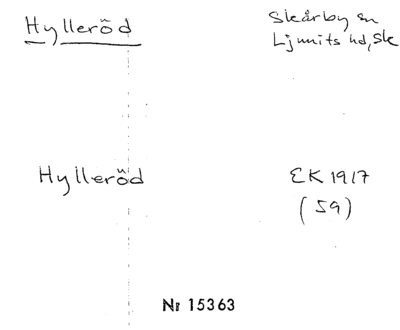 Hylleröd
Skårby sn
Ljunits hd, Sk
Hylleröd
EK 1917
(59)
Nr 15363